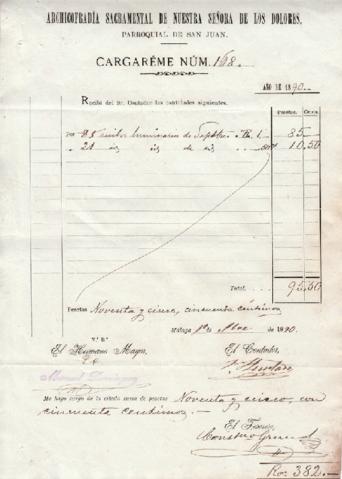 ARCHICOFRADÍA SACRAMENTAL DE NUESTRA SEÑORA DE LOS DOLORES.
PARROQUIAL DE SAN JUAN.
CARGARÉME NÚM. 168.
AÑO DE 1890
Recibí del Sr. Contador las cantidades siguientes.
Pesetas. Cénts.
Por 85 85
21 id id de id 10,50
Total. 95,50
Pesetas Noventa y cinco, cincuenta céntimos
Málaga 1890.
V.º B.º
El Hermano Mayor El Contador,
Me hago cargo de la citada suma de pesetas Noventa y cinco, con
cincuenta centimos.
El Tesorero
382.